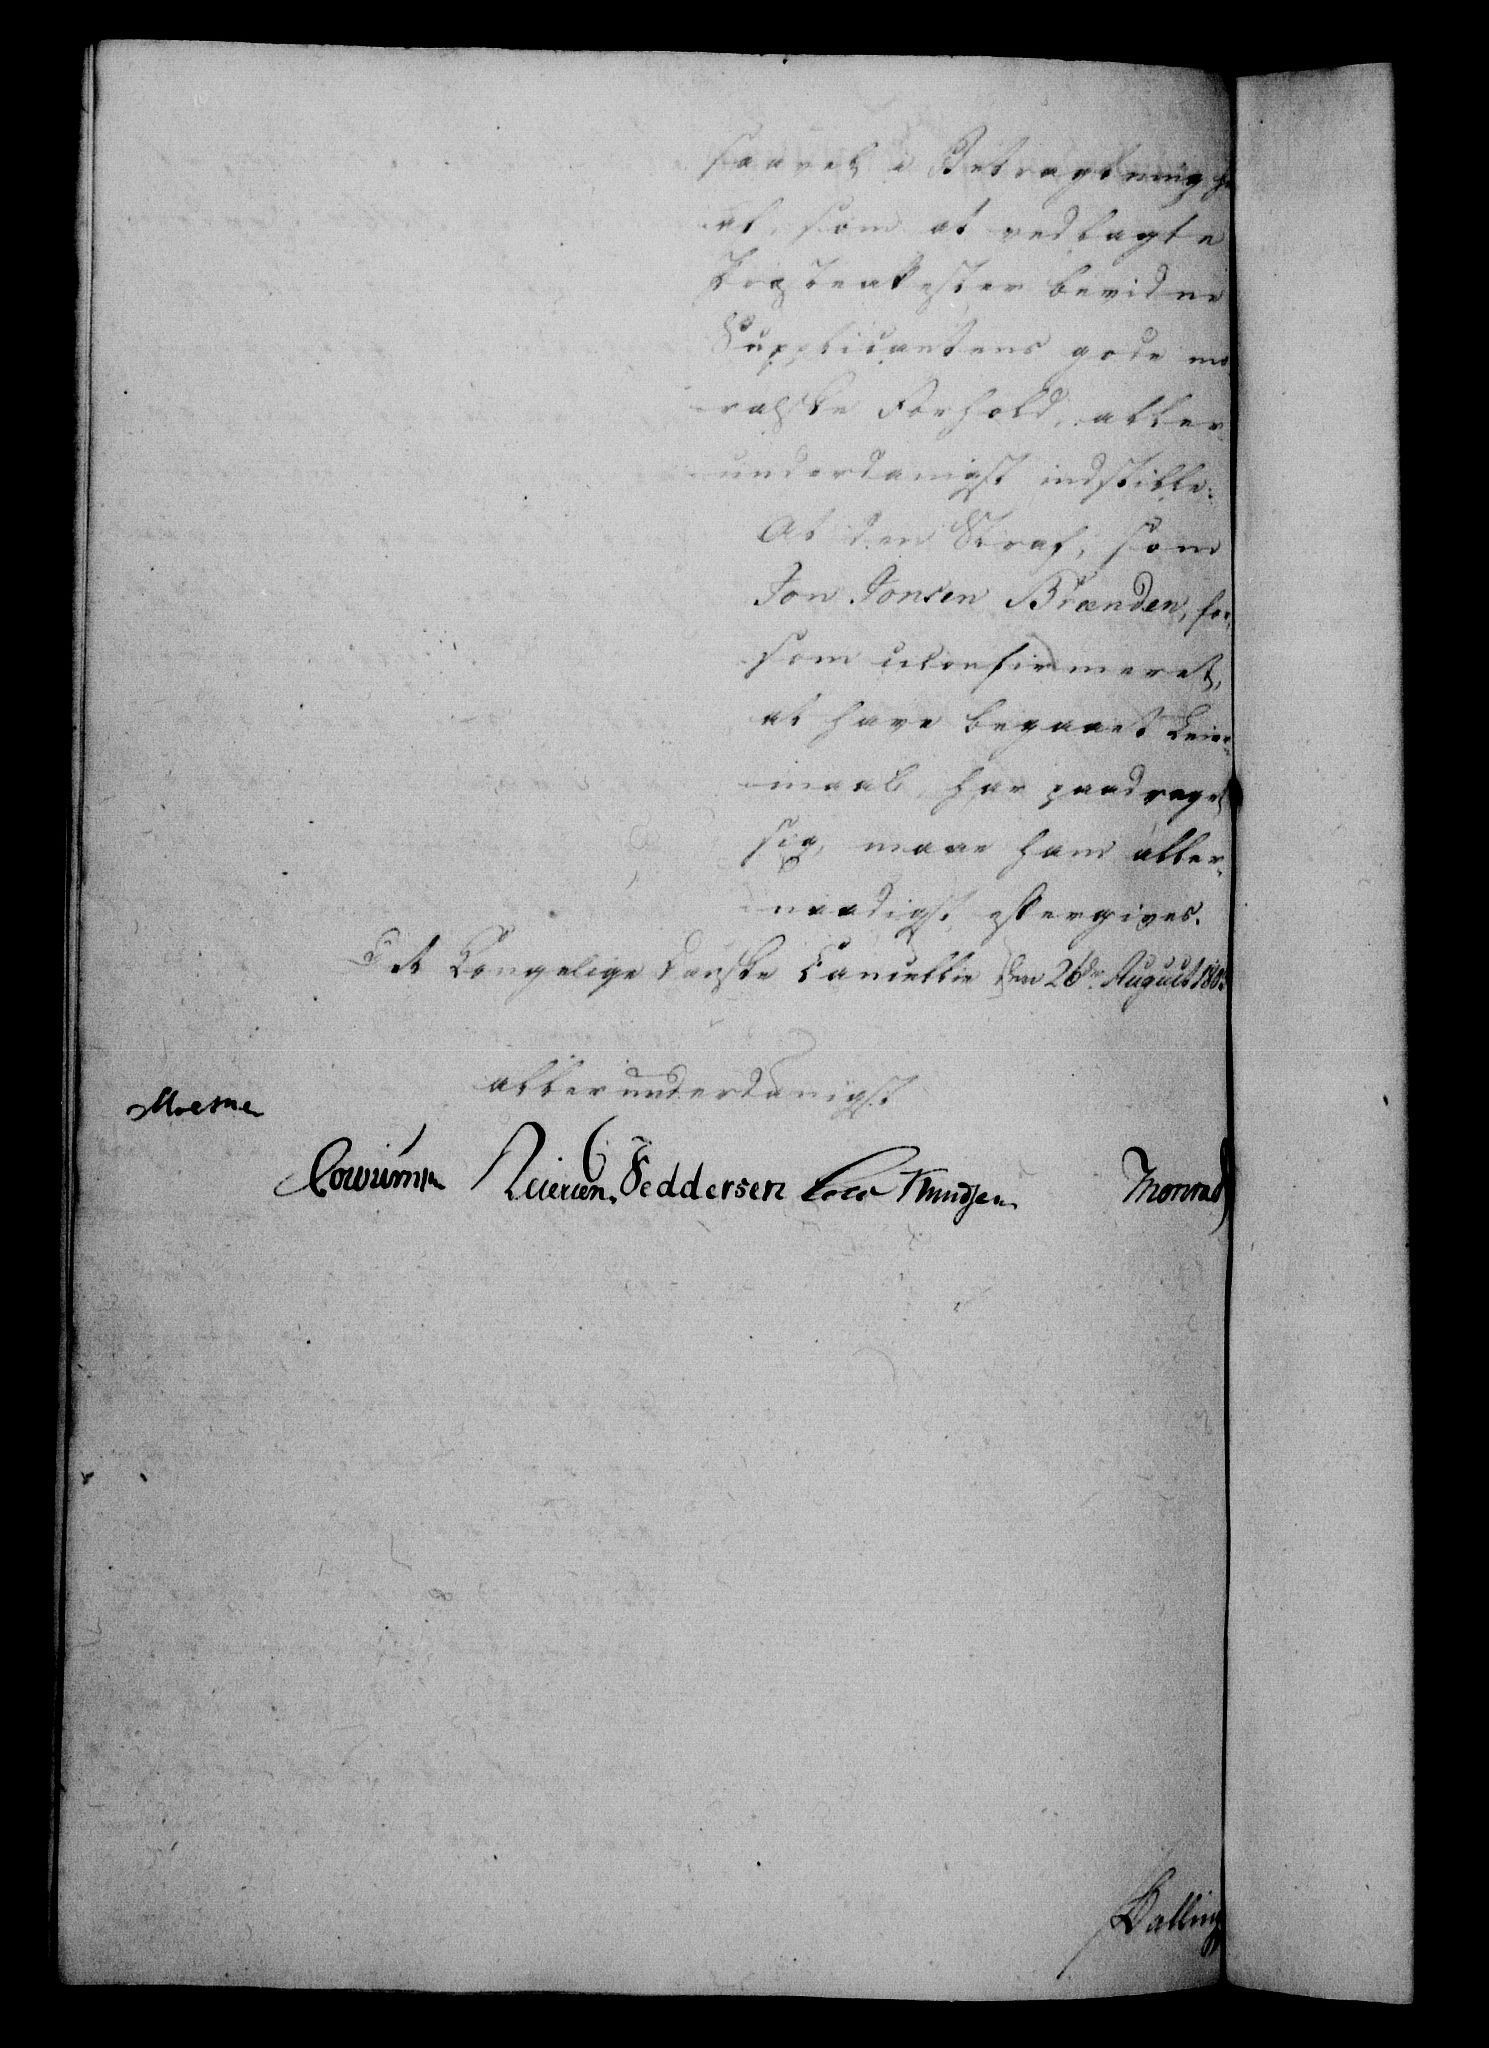 saavel i Betragtning her-
af, som at vedlagte
Præsteattester bevidne
Supplicantens gode mo-
ralske Forhold, aller-
underdanigst indstille:
At den Straf, som
Jon Jonsen Brænden, for,
som uconfirmeret,
at have begaaet Leier-
maal, har paadraget
sig, maae ham aller-
naadigst eftergives.
Det Kongelige Danske Cancellie den 26de August 180
allerunderdanigst
Moesne
Feddersen Knudsen Monrad
Balling